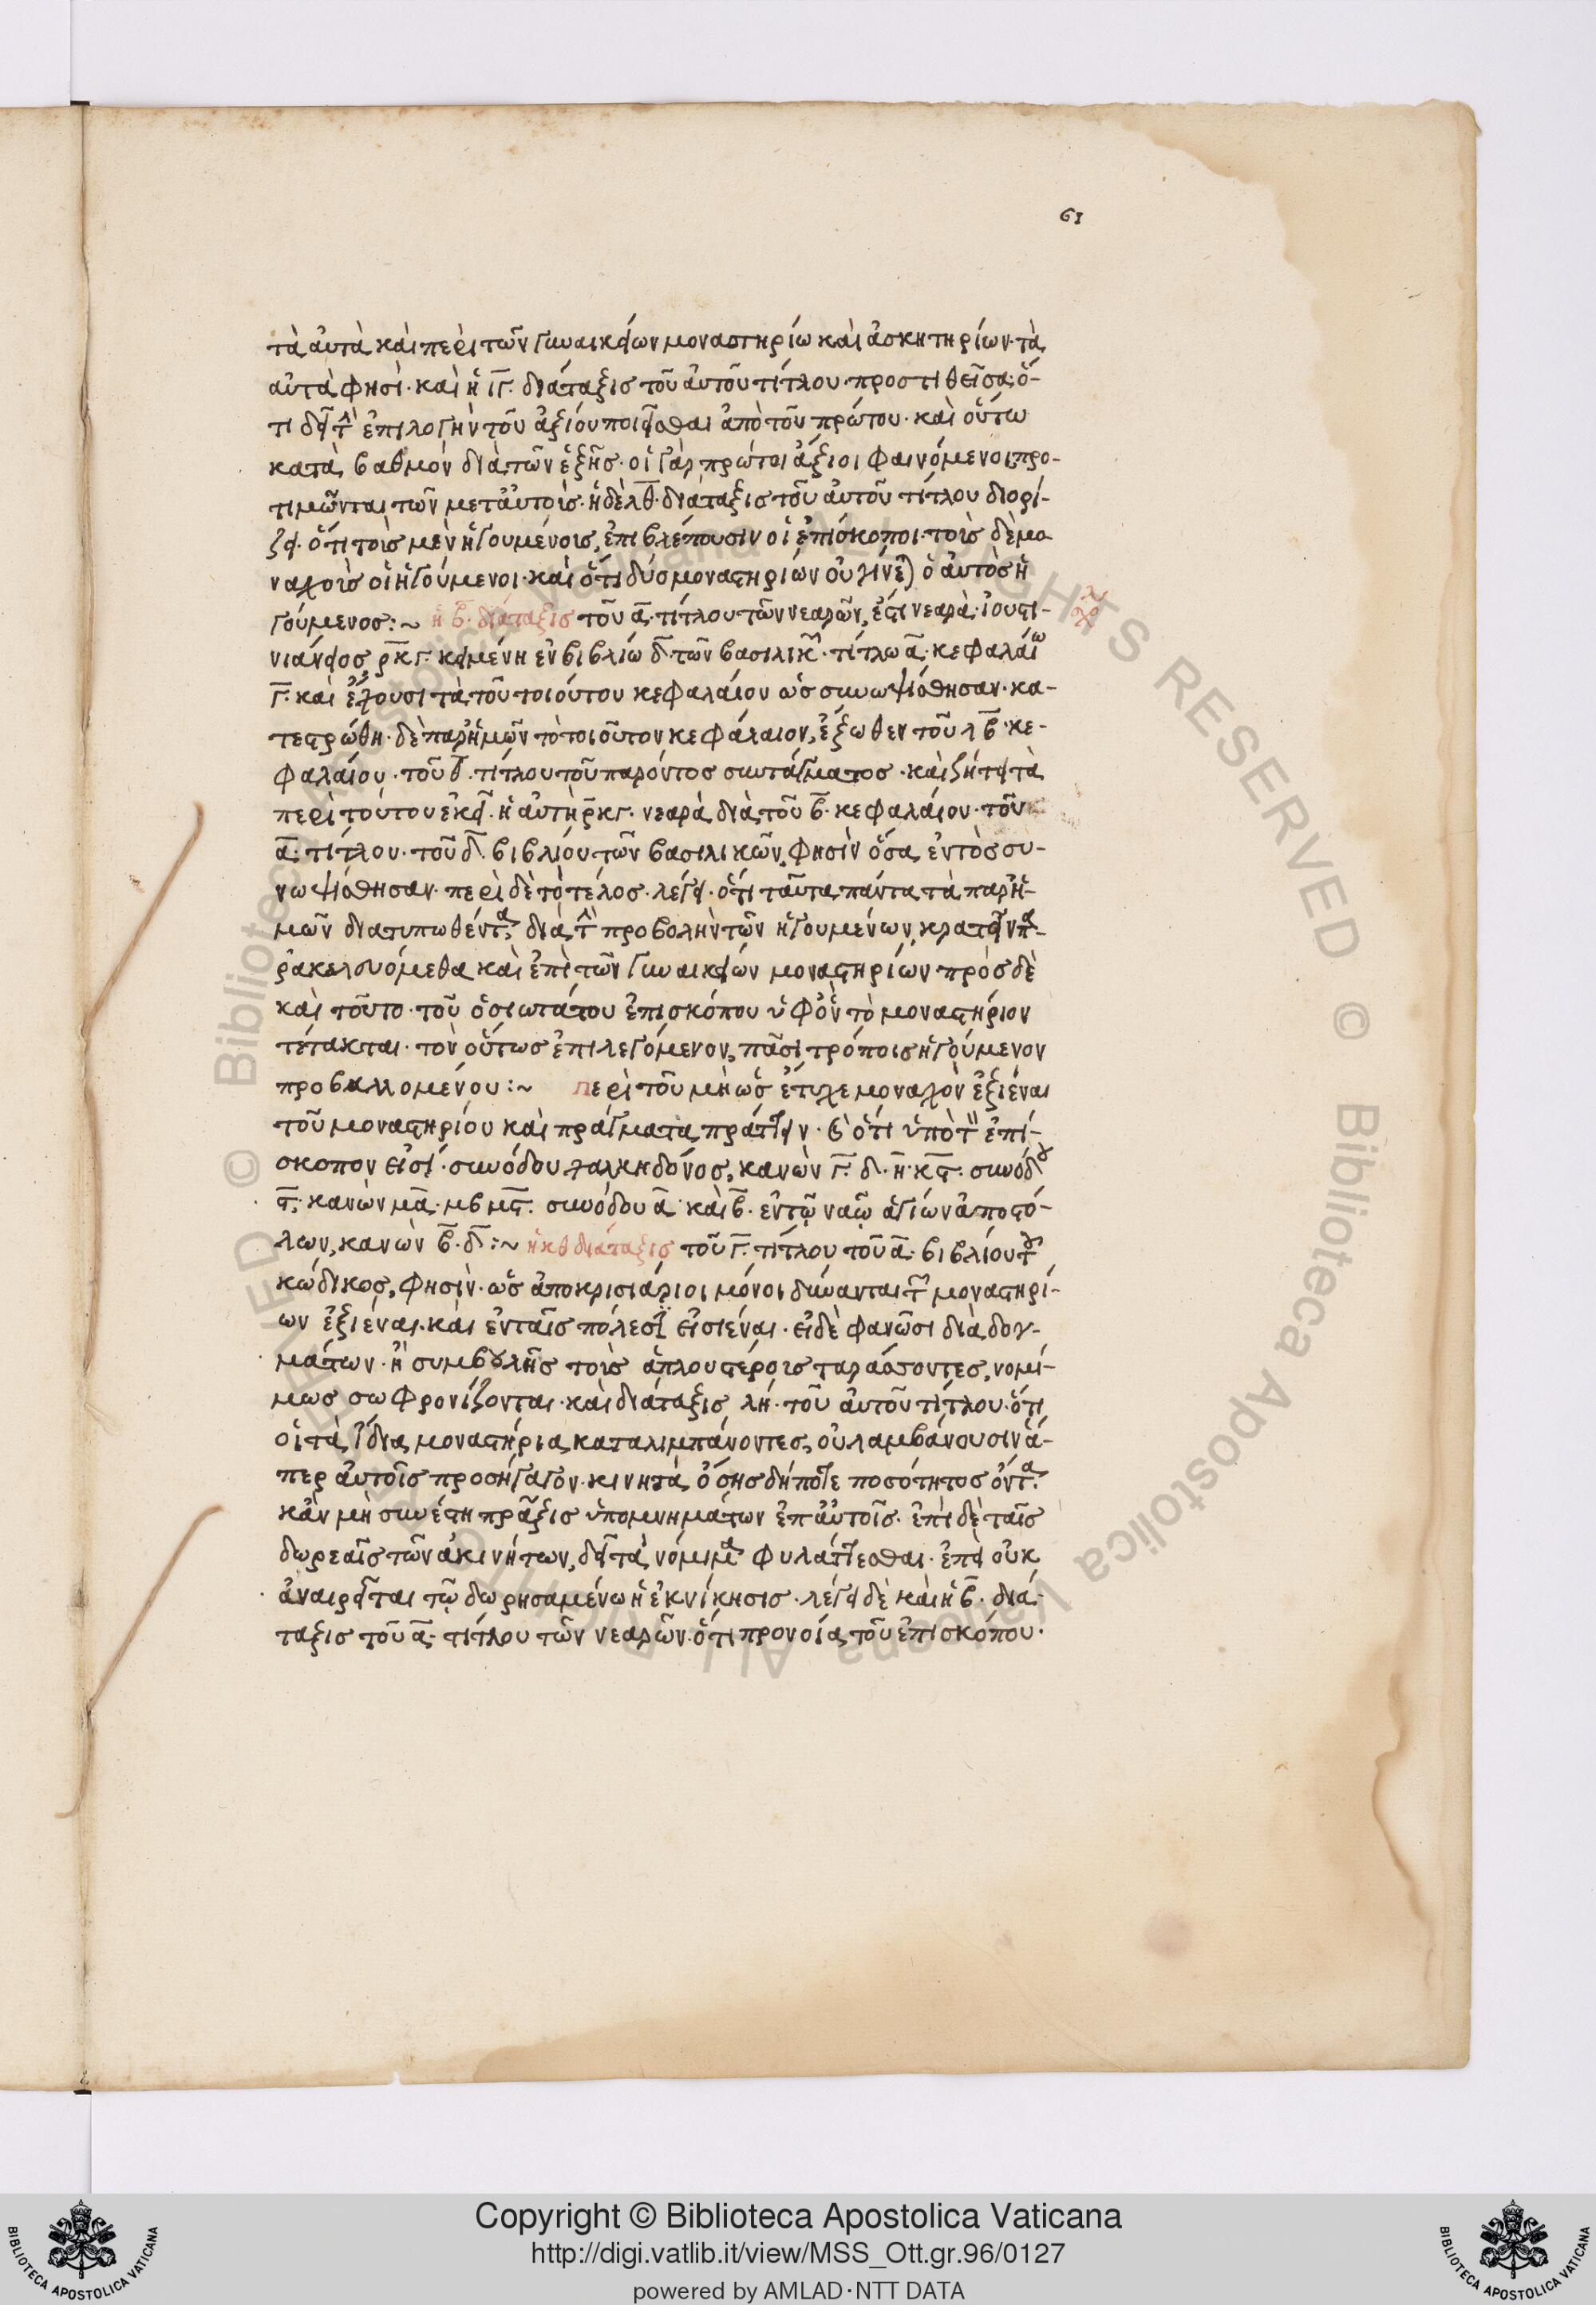 61
τὰ αὐτὰ καὶ περὶ τῶν γυναικείων μοναστηρίω καὶ ἀσκητηρίων· τὰ
αὐτὰ φησί· καὶ ἡ ιγ̅. διάταξις τοῦ αὐτοῦ τίτλου· προστιθεῖσα· ὅ-
τι δεῖ τ̀ ἐπιλογὴν τοῦ ἀξίου ποιεῖσθαι ἀπὸ τοῦ πρώτου· καὶ οὕτω
κατὰ βαθμὸν διὰ τῶν ἑξῆς· οἱ γὰρ πρώτοι ἄξιοι φαινόμενοι, προ-
τιμῶνται τῶν μετ' αὐτοὺς· ἡ δὲ λθ̅· διάταξις τοῦ αὐτοῦ τίτλου διορί-
ζει· ὅτι τοῖς μὲν ἡγουμένοις, ἐπιβλέπουσιν οἱ ἐπίσκοποι· τοῖς δὲ μο
ναχοῖς οἱ ἡγούμενοι· καὶ ὅτι δύο μοναστηρίων οὐ γίνε) ὁ αὐτὸς ἡ
γούμενος:~ ἡ β̅· διάταξις τοῦ α̅· τίτλου τῶν νεαρῶν, ἐστὶ νεαρὰ· ἰουστι-
νιάνειος ρ̅κγ· κειμένη ἐν βιβλίω δ̅· τῶν βασιλικ· τίτλω α̅· κεφαλαίω
γ̅· καὶ ἔχουσι τὰ τοῦ τοιούτου κεφαλαίου ὡς συνωψίσθησαν· κα-
τεστρώθη· δὲ παρ' ἡμῶν τὸ τοιοῦτον κεφάλαιον, ἔξωθεν τοῦ λβ̅· κε-
φαλαίου· τοῦ θ̅· τίτλου τοῦ παρόντος συντάγματος· καὶ ζήτει τὰ
περὶ τούτου ἐκεῖ· ἡ αὐτὴ ρ̅κγ· νεαρὰ διὰ τοῦ β̅· κεφαλαίου· τοῦ
α̅· τίτλου· τοῦ δ̅· βιβλίου τῶν βασιλικῶν, φησὶν ὅσα ἐντὸς συ-
νωψίσθησαν· περὶ δὲ τὸ τέλος· λέγει· ὅτι ταῦτα πάντα τὰ παρ' ἡ-
μῶν διατυπωθέντα, διὰ τ̀ προβολὴν τῶν ἡγουμένων, κρατεῖν πα-
ρακελευόμεθα καὶ ἐπὶ τῶν γυναικείων μοναστηρίων πρὸς δὲ
καὶ τοῦτο· τοῦ ὁσιωτάτου ἐπισκόπου ὑφ' ὃν τὸ μοναστήριον
τέτακται· τὸν οὕτως ἐπιλεγόμενον, πᾶσι τρόποις ἡγούμενον
προβαλλομένου:~ περὶ τοῦ μὴ ὡς ἔτυχε μοναχὸν ἐξιέναι
τοῦ μοναστηρίου καὶ πράγματα πράττειν· καὶ ὅτι ὑπὸ τ̀ ἐπί-
σκοπον εἰσί· συνόδου χαλκηδόνος, κανὼν γ̅· δ· η̅· κϛ̅· συνόδου
ϛ̅· κανὼν μα̅· μβ μϛ̅· συνόδου α̅ καὶ β̅· ἐν τῷ ναῷ ἁγίων ἀποστό-
λων, κανὼν β̅· δ̅:~ ἡ κθ διάταξις τοῦ γ̅· τίτλου τοῦ α̅· βιβλίου τοῦ
κώδικος, φησὶν· ὡς ἀποκρισιάριοι μόνοι δύνανται τ̀ μοναστηρί-
ων ἐξιέναι· καὶ ἐν ταῖς πόλεσι εἰσιέναι· εἰ δὲ φανῶσι διὰ δογ-
μάτων· ἢ συμβουλῆς τοὺς ἁπλουστέρους ταράσσοντες, νομί-
μως σωφρονίζονται· καὶ διάταξις λη· τοῦ αὐτοῦ τίτλου· ὅτι
οἱ τὰ ἴδια μοναστήρια καταλιμπάνοντες, οὐ λαμβάνουσιν ἅ-
περ αὐτοῖς προσήγαγον· κινητὰ ὅσης δήποτε ποσότητος ὄντα·
κἂν μὴ συνέστη πρᾶξις ὑπομνημάτων ἐπ' αὐτοῖς· ἐπὶ δὲ ταῖς
δωρεαῖς τῶν ἀκινήτων, δεῖ τὰ νόμιμα φυλάττεσθαι· ἐπεὶ οὐκ
ἀναιρεῖται τῷ δωρησαμένω ἡ ἐκνίκησις· λέγει δὲ καὶ ἡ β̅· διά-
ταξις τοῦ α̅· τίτλου τῶν νεαρῶν· ὅτι προνοία τοῦ ἐπισκόπου·
© Biblioteca Apostolica Vaticana ALL RIGHTS RESERVED
© Biblioteca Apostolica Vaticana ALL RIGHTS RESERVED
Copyright © Biblioteca Apostolica Vaticana
http://digi.vatlib.it/view/MSS_Ott.gr.96/0127
powered by AMLAD·NTT DATA
BIBLIOTECA APOSTOLICA VATICANA
BIBLIOTECA APOSTOLICA VATICANA